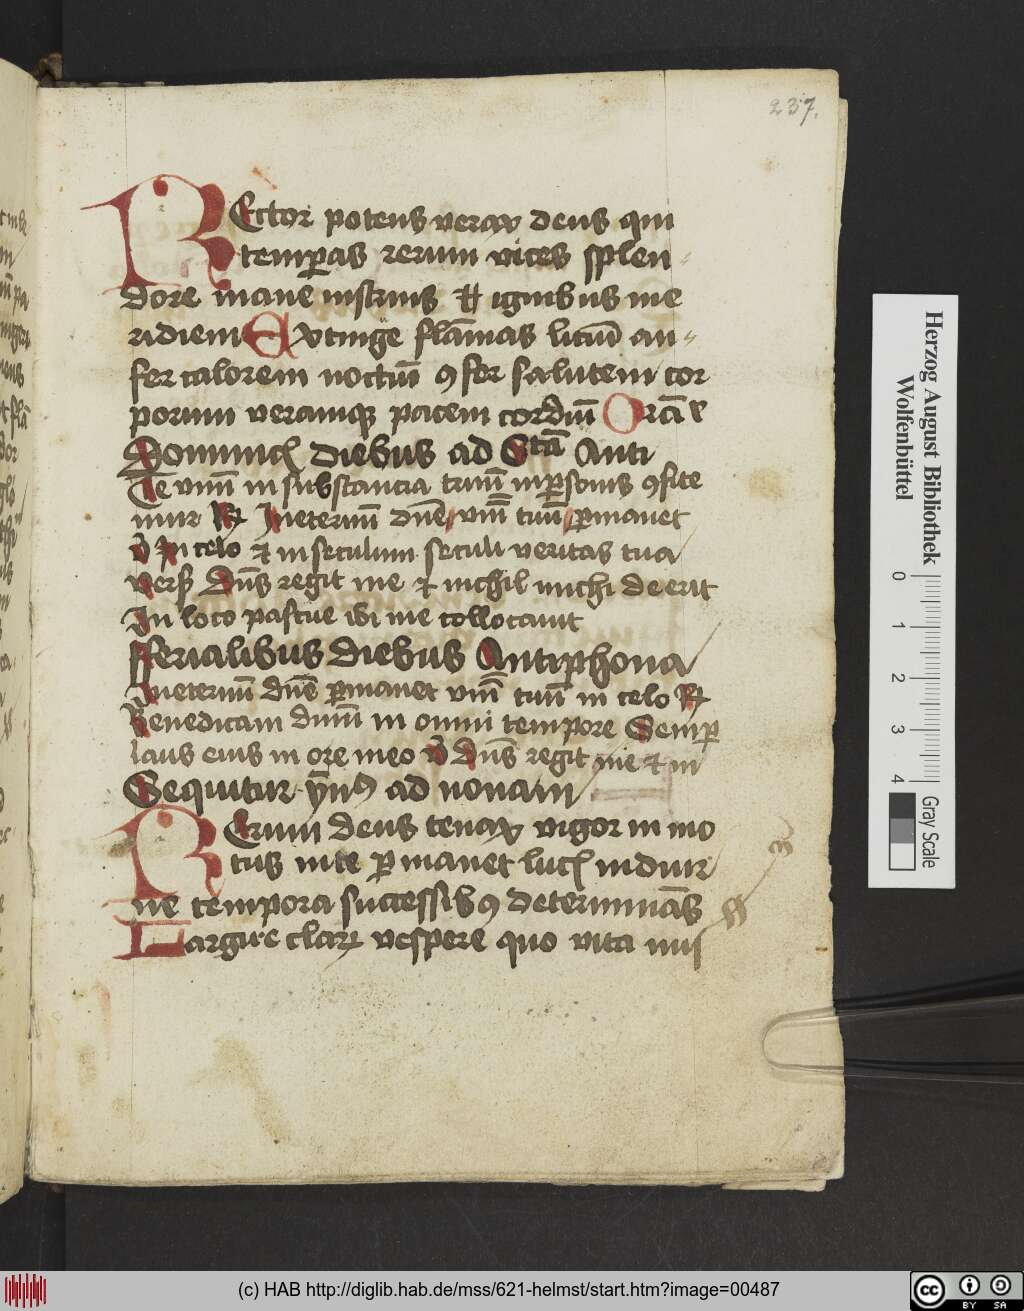 237.
REctor potens verax deus qui
temp̲as rerum vices splen⸗
dore mane instruis et ignibus me
ridiem Extinge flāmas litiū au⸗
fer calorem noctiū ꝯfer salutem cor
porum veramqꝫ pacem cordiū Orāe
Dominicꝭ diebus ad Sctā Anti
Te vnū in substancia trinū in ꝑsonis ꝯfite
mur ℟ Ineternū dn̄e vm̄ tuū ꝑmanet
℣ In celo et in seculum seculi veritas tua
vers Dn̄s regit me et nichil michi deerit
In loco pascue ibi me collocauit
fferialibus diebus Antiphona
Ineternū dn̄e ꝑmanet vm̄ tuū in celo ℟
Benedicam dnm̄ in omni tempore Semꝑ
laus eius in ore meo ℣ Dn̄s regit me et in
Sequitur ynꝰ ad nonam
REerum deus tenax vigor in mo
tus in te ꝑmanet lucꝭ in diur
ne tempora successibꝰ determināˢ
Largire clarꝝ vespere quo vita nus
Herzog August Bibliothek
Wolfenbüttel
0 1 2 3 4
Gray Scale
(c) HAB http://diglib.hab.de/mss/621-helmst/start.htm?image=00487
cc BY SA